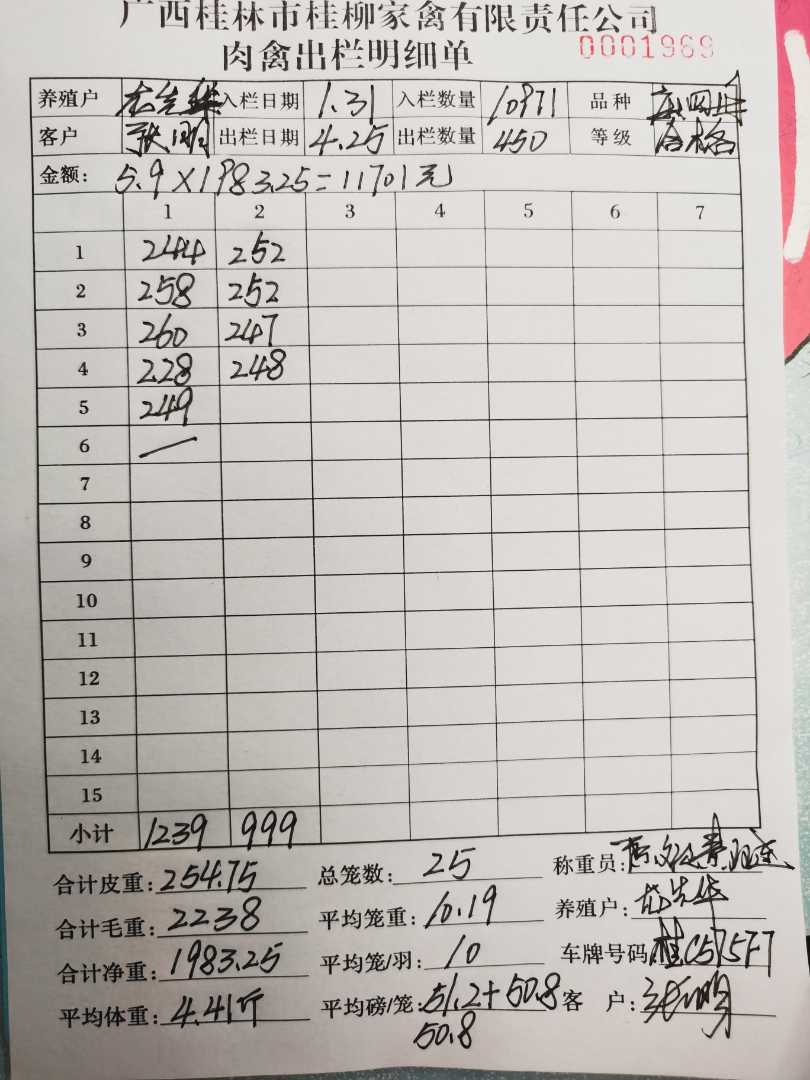 广西桂林市桂柳家禽有限责任公司
肉禽出栏明细单 0001969
养殖户 龙先华 入栏日期 1.31 入栏数量 10971 品种
客户 张明 出栏日期 4.25 出栏数量 450 等级 合格
金额: 5.9×1983.25=11701元
1 2 3 4 5 6 7
1 244 252
2 258 252
3 260 247
4 228 248
5 249
6 —
7
8
9
10
11
12
13
14
15
小计 1239 999
合计皮重: 254.75 总笼数: 25 称重员:
合计毛重: 2238 平均笼重: 10.19 养殖户: 龙先华
合计净重: 1983.25 平均笼/羽: 10 车牌号码: 桂C575F7
平均体重: 4.41斤 平均磅/笼: 51.2+50.8 客 户: 张明
50.8